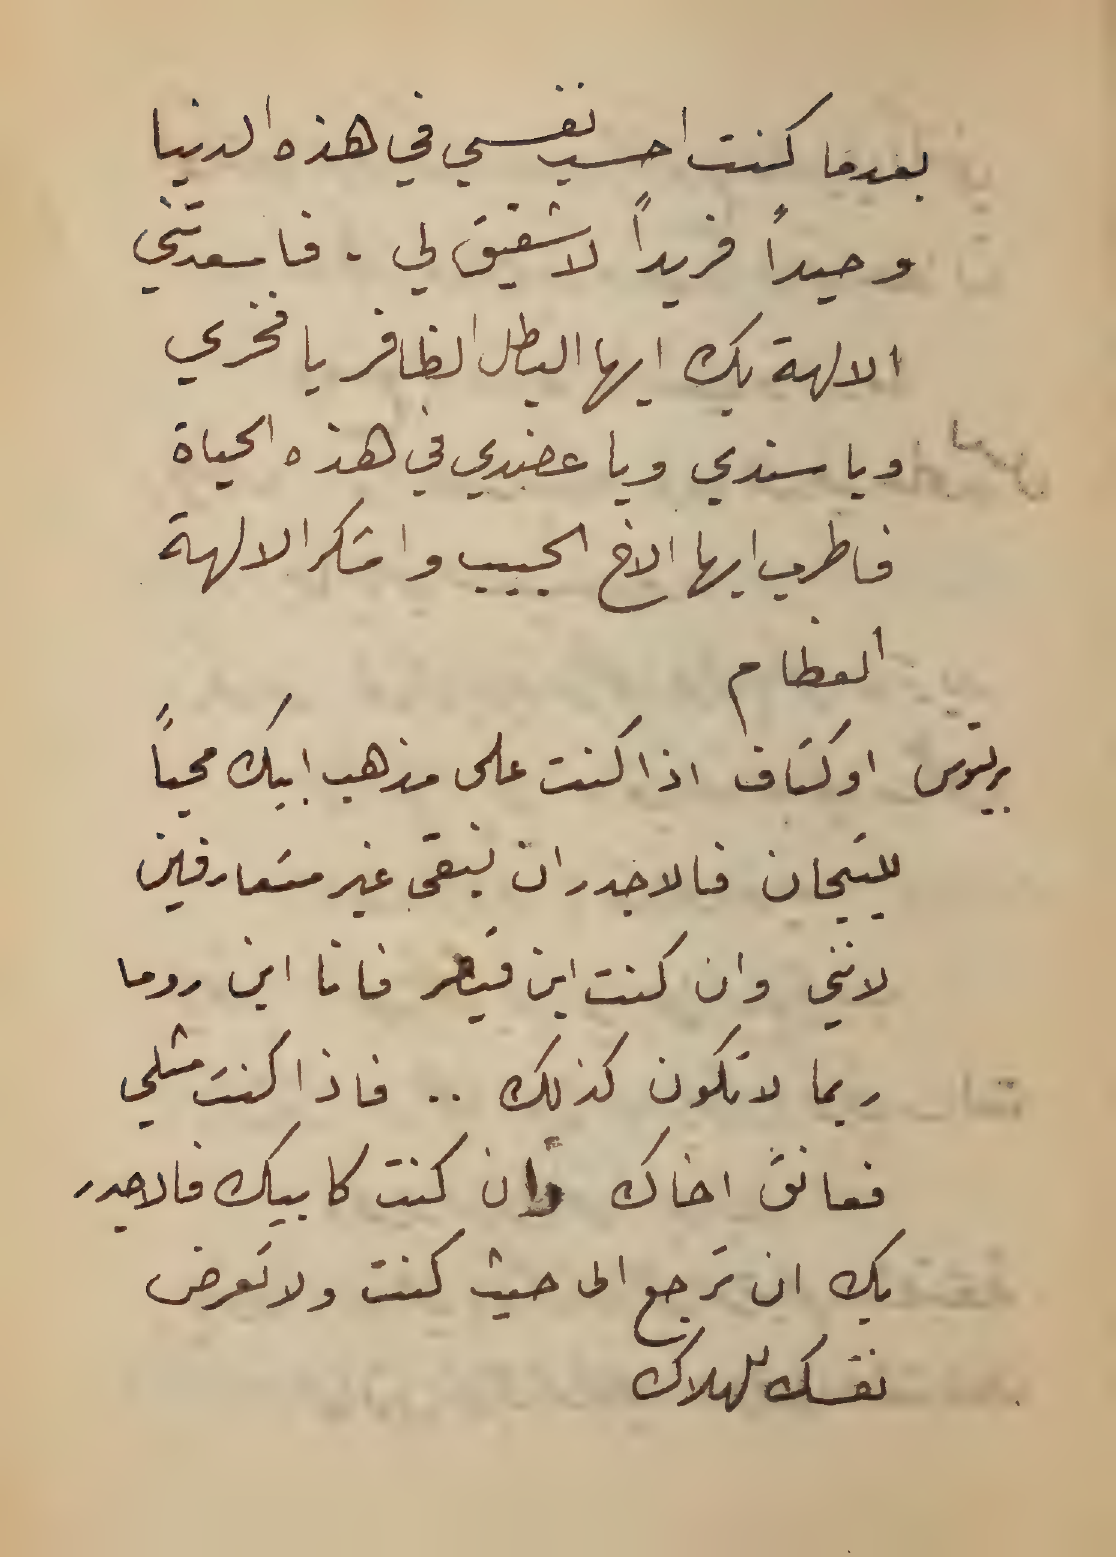 بعدما كنت احسب نفسي في هذه الدنيا
وحيداً فريداً لا شقيق لي . فاسعدتني
الالهة بك ايها البطل الظافر يا فخري
ويا سندي ويا عضدي في هذه الحياة
فاطرب ايها الاخ الحبيب واشكر الالهة
العظام
بريتوس اوكتاف اذا كنت على مذهب ابيك محباً
للتيجان فالاجدر ان نبقى غير متعارفين
لانني وان كنت ابن قيصر فانا ابن روما
ربما لا تكون كذلك .. فاذا كنت مثلي
فعانق اخاك وان كنت كابيك فالاجدر
بك ان ترجع الى حيث كنت ولا تعرض
نفسك للهلاك